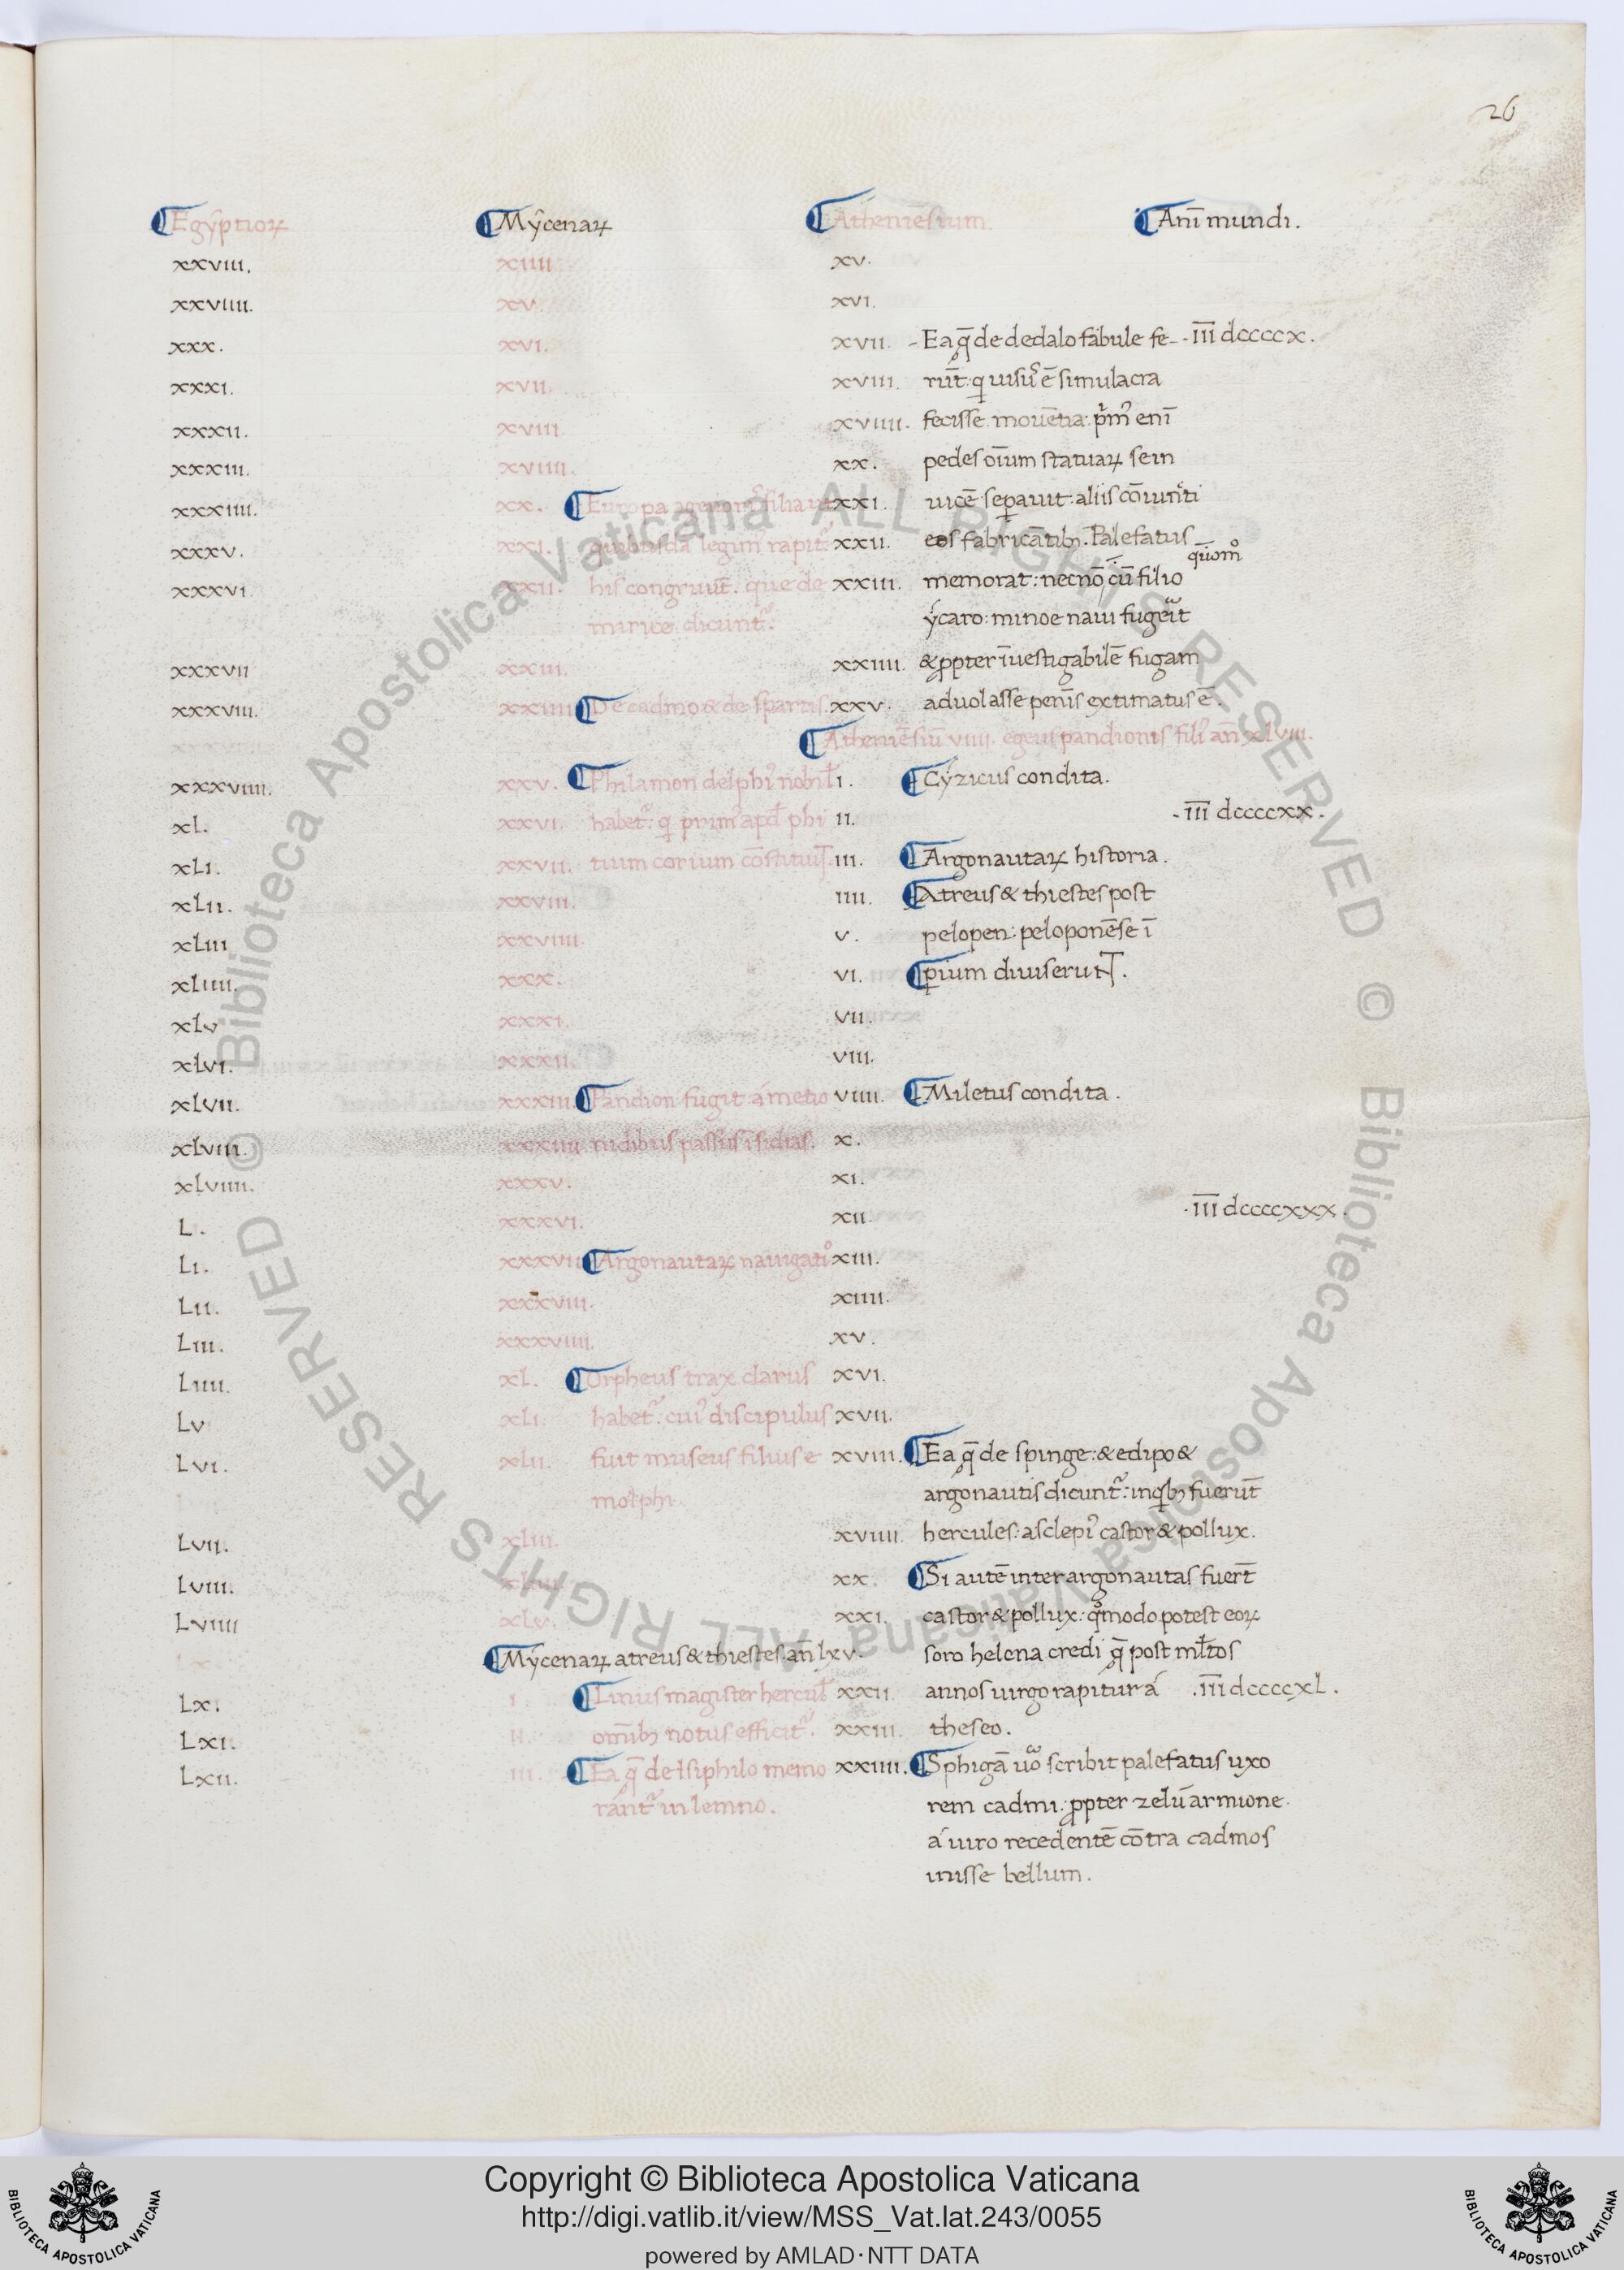 26
Egyptioꝝ Mycenaꝝ Atheniēsium. Anī mundi.
xxviii. xiiii xv.
xxviiii. xv. xvi.
xxx. xvi. xvii. Ea q̄ de dedalo fabule fe- iii̅ dccccx.
xxxi. xvii. xviii. rūt: q uisuˢ ē simulacra
xxxii. xviii xviiii. fecisse mouētia: pʳmˀ enī
xxxiii. xviiii. xx. pedes oīum statuaꝝ sein
xxxiiii. xx. Europa agenorisˀ filia ut xxi. uicē seꝑauit: aliis cōiuncti
xxxv. xxi. quibusdā legimˀ rapit xxii. eos fabricātibꝫ. Palefatus
quōmº
xxxvi xxii. his congruūt. que de xxiii. memorat: necnō cū filio
mirice dicuntᷣ. ycaro: minoe naui fugerit
xxxvii xxiii. xxiiii. & ꝓpter īuestigabilē fugam
xxxviii. xxiiii De cadmo & de spartis. xxv. aduolasse pennis extimatus ē.
Atheniēsiū viiii. egeus pandionis filˀ an̄ xlviii.
xxxviiii. xxv. Philamon delphiˀ nobil̄ i. Cyzicus condita.
xl. xxvi. habetᷣ: q primˀ apd̄ phi ii. iii̅ dccccxx.
xli. xxvii. tium corium cōstituiT. iii. Argonautaꝝ historia.
xlii. xxviii. iiii. Atreus & thiestes post
xliii xxviiii. v. pelopen: peloponēse ī
xliiii. xxx. vi. ꝑium diuiserunT.
xlv xxxi. vii.
xlvi. xxxii. viii.
xlvii. xxxiii. Pandion fugit á metio viiii. Miletus condita.
xlviii. xxxiiii rudibus passus īsidias. x.
xlviiii. xxxv. xi.
L. xxxvi. xii. iii̅ dccccxxx.
Li. xxxvii Argonautaꝝ nauigatiº xiii.
Lii. xxxviii. xiiii.
Liii. xxxviiii. xv.
Liiii. xl. Orpheus trax clarus xvi.
Lv xli. habetᷣ: cuiˀ discipulus xvii.
Lvi. xlii. fuit museus filius e xviii. Ea q̄ de spinge: & edipo &
molphi argonautis dicuntᷣ: in qbꝫ fuerūt
Lvii. xliii. xviiii. hercules: asclepiˀ castor & pollux.
Lviii. xliiii xx. Si autē inter argonautas fuerт̄
Lviiii xlv. xxi. castor & pollux: qºmodo potest eoꝝ
Mycenaꝝ atreus & thiestes. an̄ lxv. soro helena credi q̄ post ml̄tos
Lx. i. Linus magister hercul̄ xxii. annos uirgo rapitur á iii̅ dccccxL.
Lxi. ii. omībꝫ notus efficitᷣ. xxiii. theseo.
Lxii. iii. Ea q̄ de Isiphilo memo xxiiii. Sphigā uºo scribit palefatus uxo
rantᷣ in lemno. rem cadmi. ꝓpter zelū armione
á uiro recedentē cōtra cadmos
inisse bellum.
Copyright © Biblioteca Apostolica Vaticana
http://digi.vatlib.it/view/MSS_Vat.lat.243/0055
powered by AMLAD·NTT DATA
BIBLIOTECA APOSTOLICA VATICANA
BIBLIOTECA APOSTOLICA VATICANA
© Biblioteca Apostolica Vaticana ALL RIGHTS RESERVED
© Biblioteca Apostolica Vaticana ALL RIGHTS RESERVED